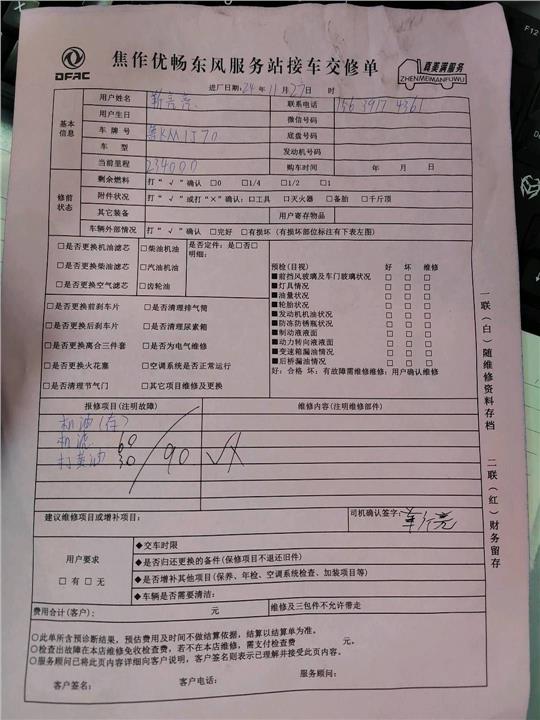 DFAC
焦作优畅东风服务站接车交修单
真美满服务
ZHENMEIMANFUWU
进厂日期:24年11月27日 时
基本信息
用户姓名 靳亮亮 联系电话 156 3917 4361
用户生日 微信号码
车牌号 KM1J70 底盘号码
车型 发动机号码
当前里程 234000 购车时间 年 月 日
修前状态
剩余燃料 打“√”确认 □0 □1/4 □1/2 □1
附件状况 打“√”或打“×”确认:□工具 □灭火器 □备胎 □千斤顶
其它装备 用户寄存物品
车辆外部情况 打“√”确认 □完好 □有损坏(有损坏部位标注有下表左图)
□是否更换机油滤芯 □柴油机油 是否定件:是□否□
明细:
□是否更换柴油滤芯 □汽油机油
□是否更换空气滤芯 □齿轮油
□是否更换前刹车片 □是否清理排气筒
□是否更换后刹车片 □是否清理尿素箱
□是否更换离合三件套 □是否为电气维修
□是否更换火花塞 □空调系统是否正常运行
□是否清理节气门 □其它项目维修及更换
预检(目视) 好 坏 维修
■前挡风玻璃及车门玻璃状况 □ □ □
■灯具情况 □ □ □
■油量状况 □ □ □
■轮胎状况 □ □ □
■发动机机油状况 □ □ □
■防冻防锈瓶状况 □ □ □
■制动液液面 □ □ □
■动力转向液液面 □ □ □
■变速箱漏油情况 □ □ □
■后桥漏油情况 □ □ □
好:合格 坏:有故障需维修维修:用户确认维修
报修项目(注明故障) 维修内容(注明维修部件)
机油(存)
机滤 60
打黄油 30 90
建议维修项目或增补项目: 司机确认签字:
用户要求
□有□无
◆交车时限
◆是否归还更换的备件(保修项目不退还旧件)
◆是否增补其他项目(保养、年检、空调系统检查、加装项目等)
◆车辆是否需要清洁:
费用合计(客户): 元 维修及三包件不允许带走
○此单所含预诊断结果,预估费用及时间不做结算依据,结算以结算单为准。
○检查出故障在本店维修免收检查费,若不在本店维修,需支付检查费 元。
○服务顾问已将此页内容详细向客户说明,客户签名则表示已理解并接受此页内容。
客户签名: 客户电话: 服务顾问:
一联(白)随维修资料存档
二联(红)财务留存
F12